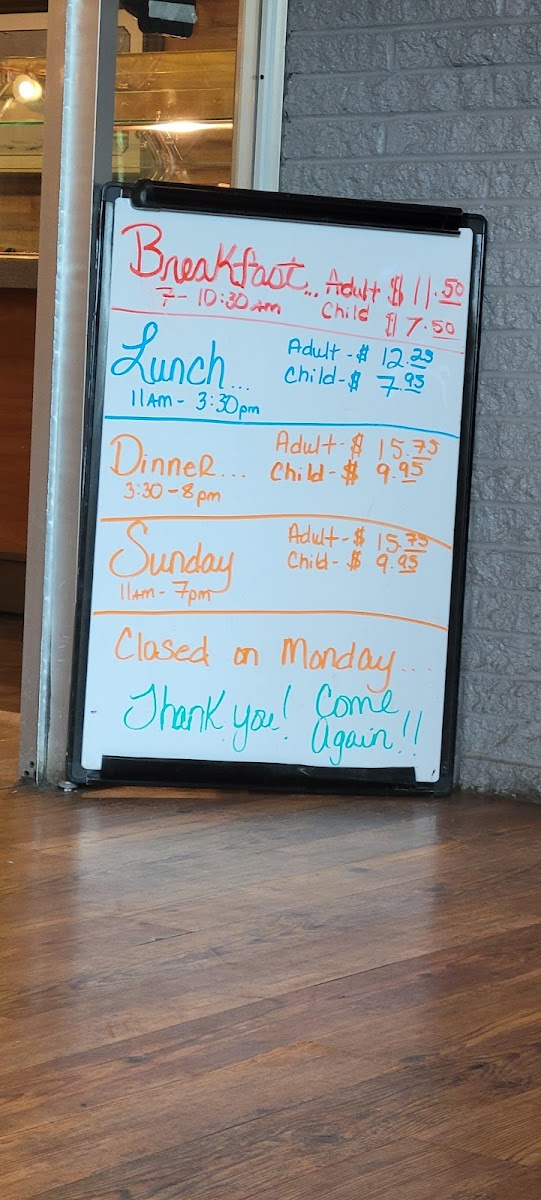 Breakfast... Adult $11.50
7-10:30am Child $7.50
Lunch... Adult-$ 12.25
11AM-3:30pm Child-$ 7.95
Dinner... Adult-$ 15.75
3:30-8pm Child-$ 9.95
Sunday Adult-$ 15.75
11AM-7pm Child-$ 9.95
Closed on Monday...
Thank you! Come
Again!!